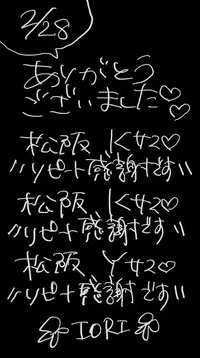 2/28
ありがとう
ございました♡♡
松阪 Kサス♡
"リピート感謝です"
松阪 Kサス♡
"リピート感謝です"
松阪 Yサス♡
"リピート感謝です"
IORI